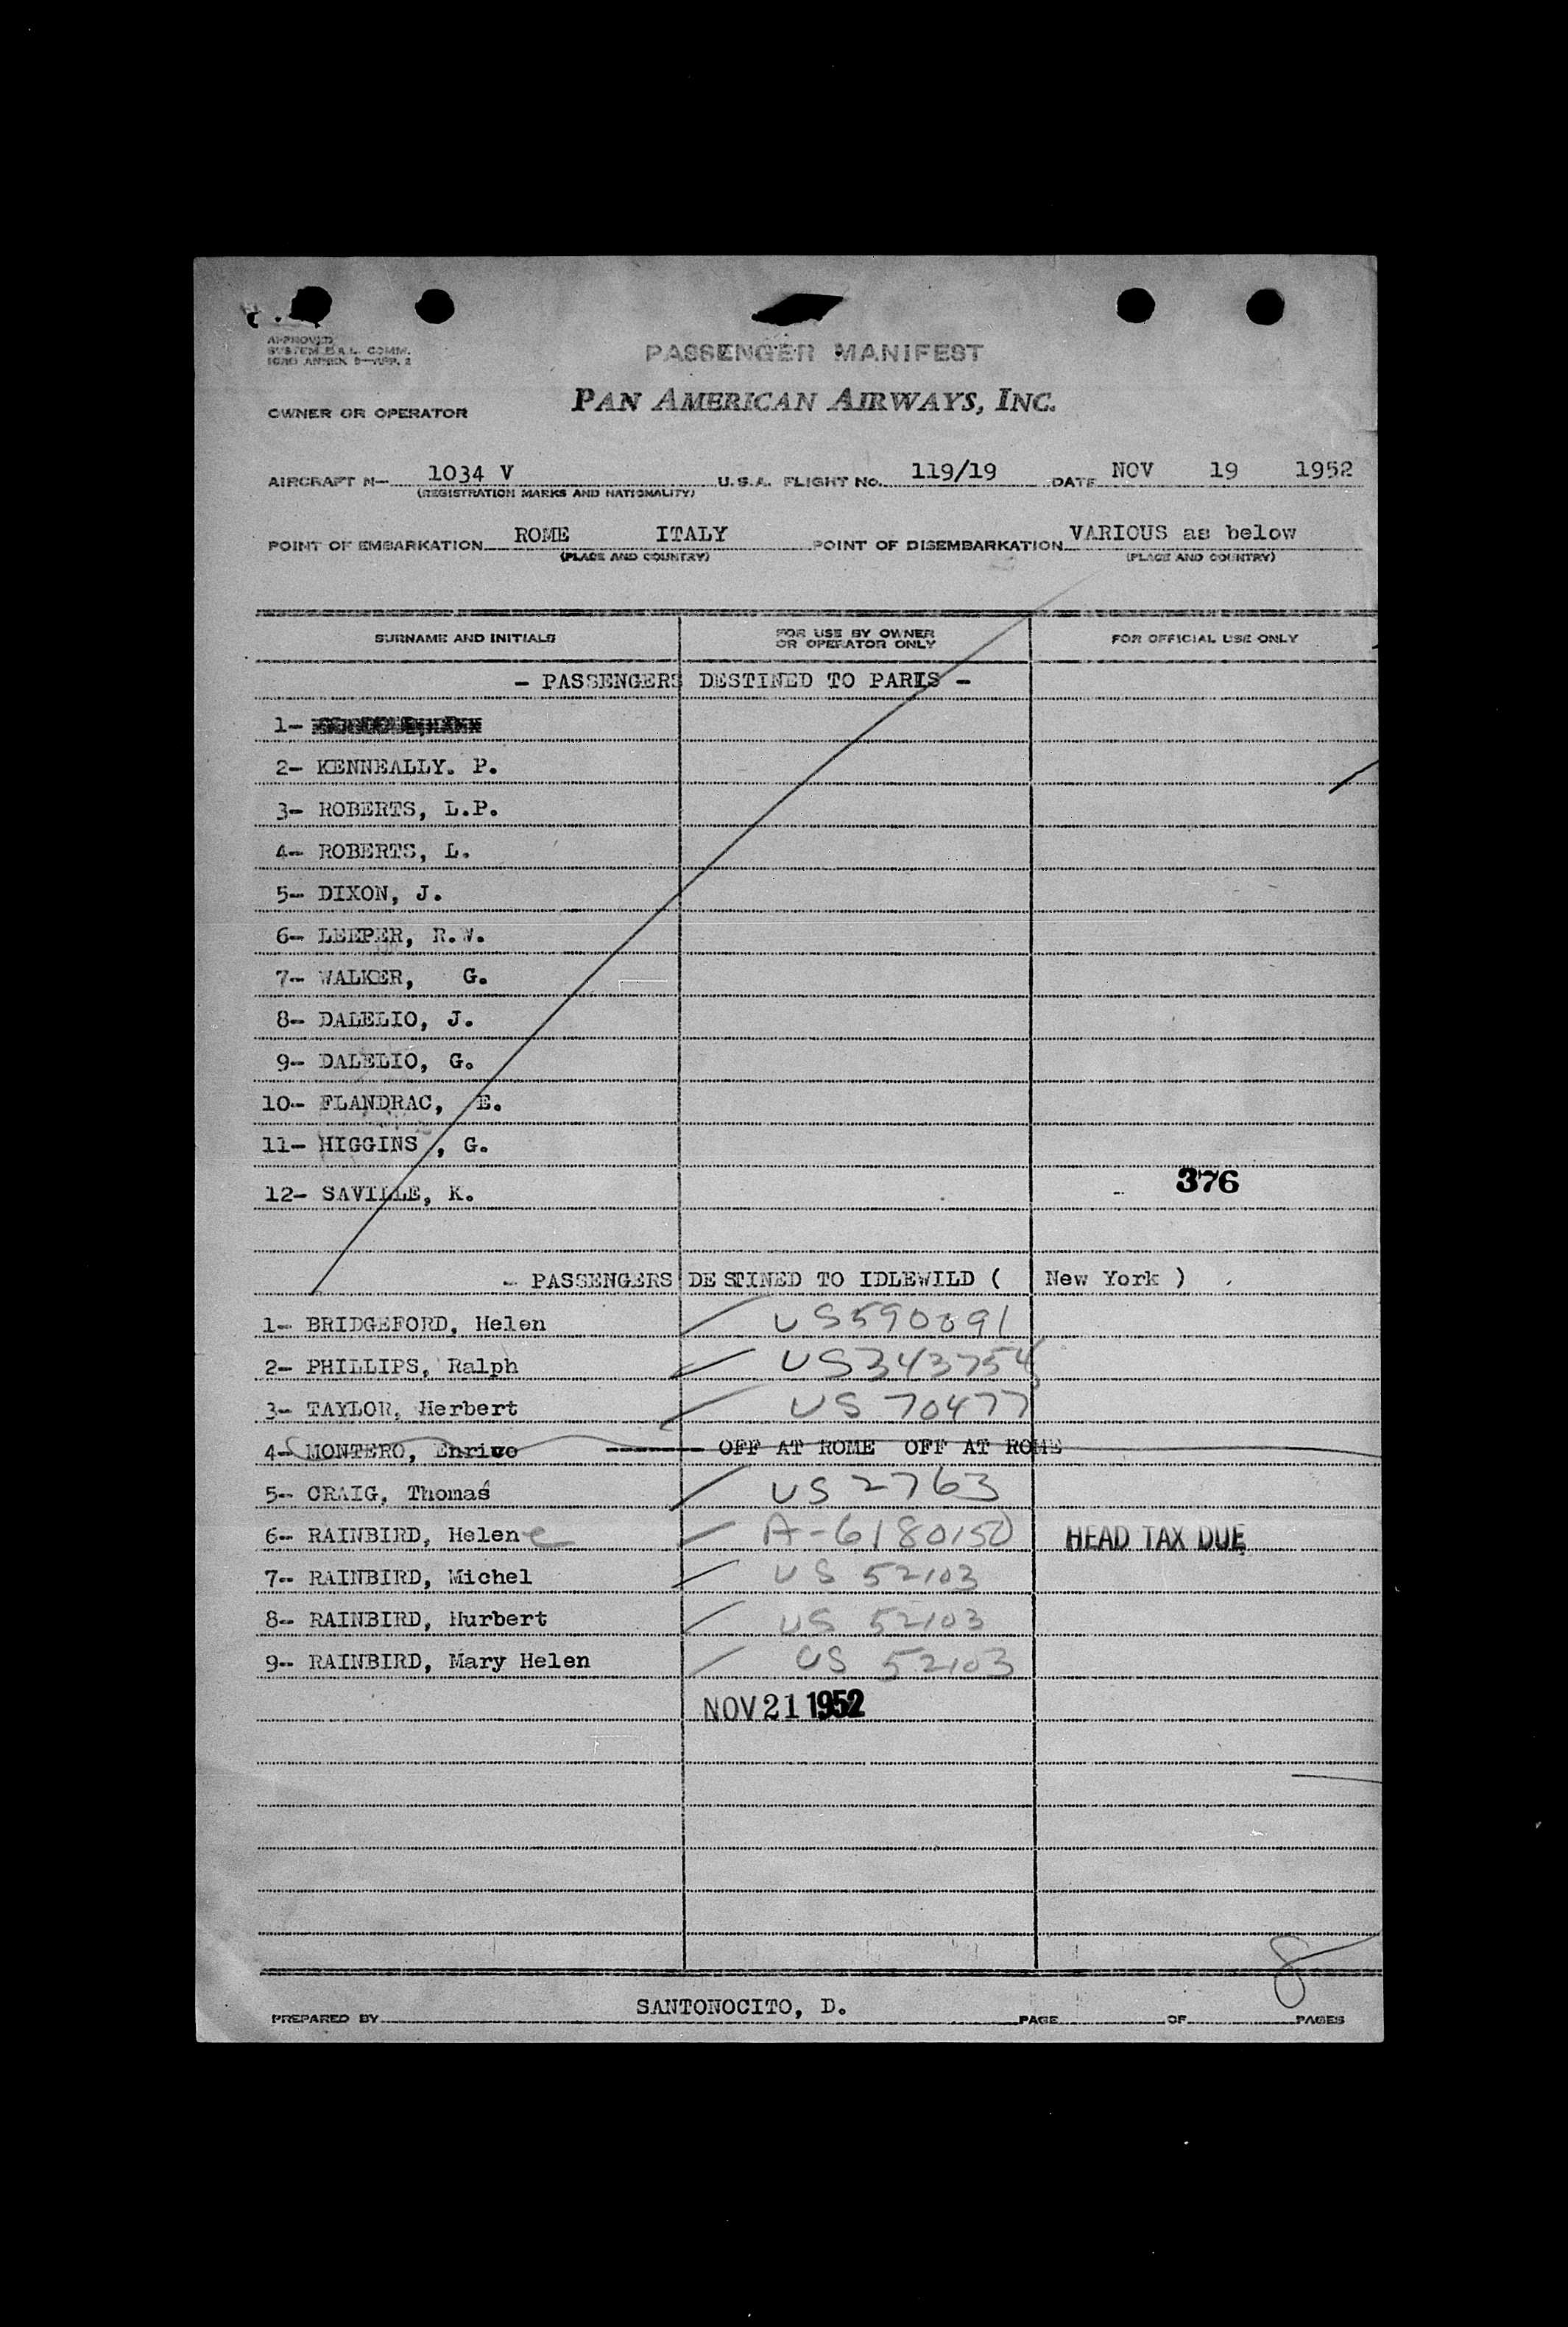 APPROVED
SYSTEM B.A.L. COMM.
ICAO ANNEX 9—APP. 2
PASSENGER MANIFEST
OWNER OR OPERATOR PAN AMERICAN AIRWAYS, INC.
AIRCRAFT N— 1034 V U.S.A. FLIGHT NO. 119/19 DATE NOV 19 1952
(REGISTRATION MARKS AND NATIONALITY)
POINT OF EMBARKATION ROME ITALY POINT OF DISEMBARKATION VARIOUS as below
(PLACE AND COUNTRY) (PLACE AND COUNTRY)
SURNAME AND INITIALS FOR USE BY OWNER OR OPERATOR ONLY FOR OFFICIAL USE ONLY
- PASSENGERS DESTINED TO PARIS -
1-
2- KENNEALLY. P.
3- ROBERTS, L.P.
4- ROBERTS, L.
5- DIXON, J.
6- LEEPER, R.W.
7- WALKER, G.
8- DALELIO, J.
9- DALELIO, G.
10- FLANDRAC, E.
11- HIGGINS , G.
12- SAVILLE, K. 376
- PASSENGERS DESTINED TO IDLEWILD ( New York )
1- BRIDGEFORD, Helen US590891
2- PHILLIPS, Ralph US343754
3- TAYLOR, Herbert US 70477
4- MONTERO, Enrico -------- OFF AT ROME OFF AT ROME
5- CRAIG, Thomas US 2763
6- RAINBIRD, Helene A-6180150 HEAD TAX DUE
7- RAINBIRD, Michel US 52103
8- RAINBIRD, Hurbert US 52103
9- RAINBIRD, Mary Helen US 52103
NOV 21 1952
8
PREPARED BY SANTONOCITO, D. PAGE OF PAGES